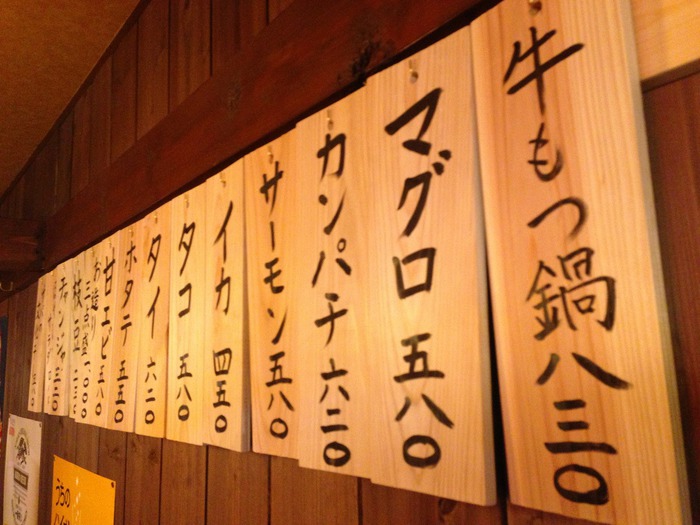 牛もつ鍋 八三〇
マグロ 五八〇
カンパチ 六二〇
サーモン 五八〇
イカ 四五〇
タコ 五八〇
タイ 六二〇
ホタテ 五五〇
甘エビ 五八〇
お造り
三点盛 一〇〇〇
枝豆 二三〇
チャンジャ 三五〇
うちの